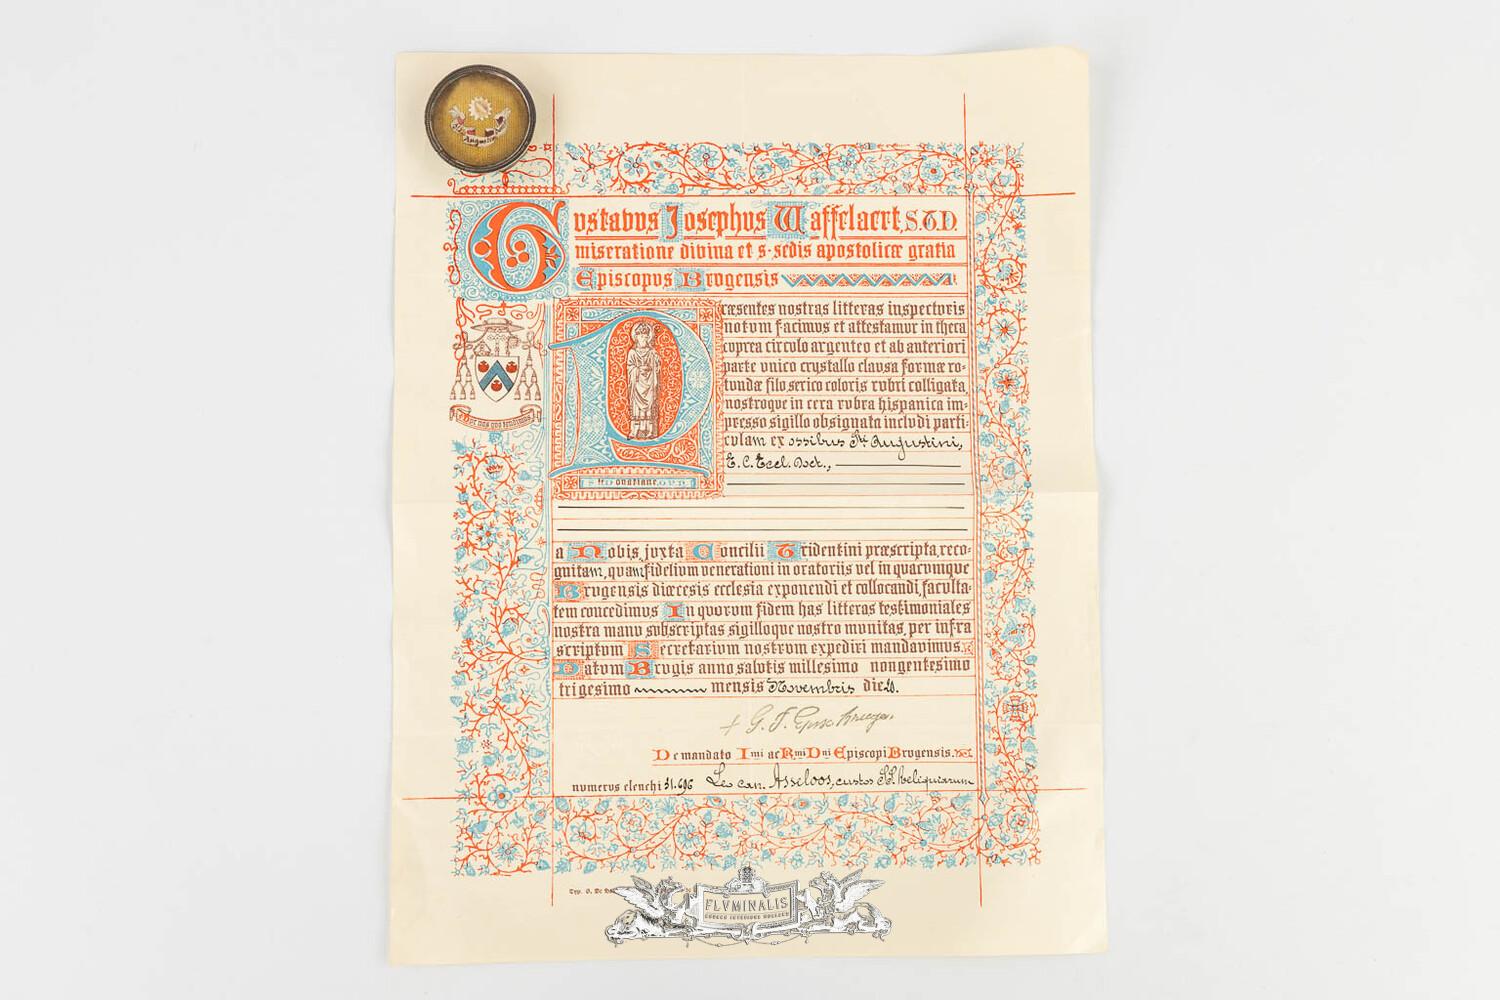 Augustini
Gustavus Josephus Waffelaert, S.T.D.
miseratione divina et s. sedis apostolicæ gratia
Episcopus Brugensis
Præsentes nostras litteras inspecturis
notum facimus et attestamur in theca
cuprea circulo argenteo et ab anteriori
parte unico crystallo clausa formæ ro-
tundæ filo serico coloris rubri colligata,
nostroque in cera rubra hispanica im-
presso sigillo obsignata includi parti-
culam ex ossibus Sti Augustini,
E. C. Eccl. Doct.,
a Nobis, juxta Concilii Tridentini præscripta, reco-
gnitam, quam fidelium venerationi in oratoriis vel in quacumque
Brugensis diœcesis ecclesia exponendi et collocandi, faculta-
tem concedimus. In quorum fidem has litteras testimoniales
nostra manu subscriptas sigilloque nostro munitas, per infra
scriptum Secretarium nostrum expediri mandavimus.
Datum Brugis anno salutis millesimo nongentesimo
trigesimo mensis Novembris die 20.
+ G. J. Episc. Brugen.
De mandato Imi ac Rmi Dni Episcopi Brugensis.
numerus elenchi 51.696 Leo can. Asseloos, custos SS. Reliquiarum
Typ. D. De
FLVMINALIS